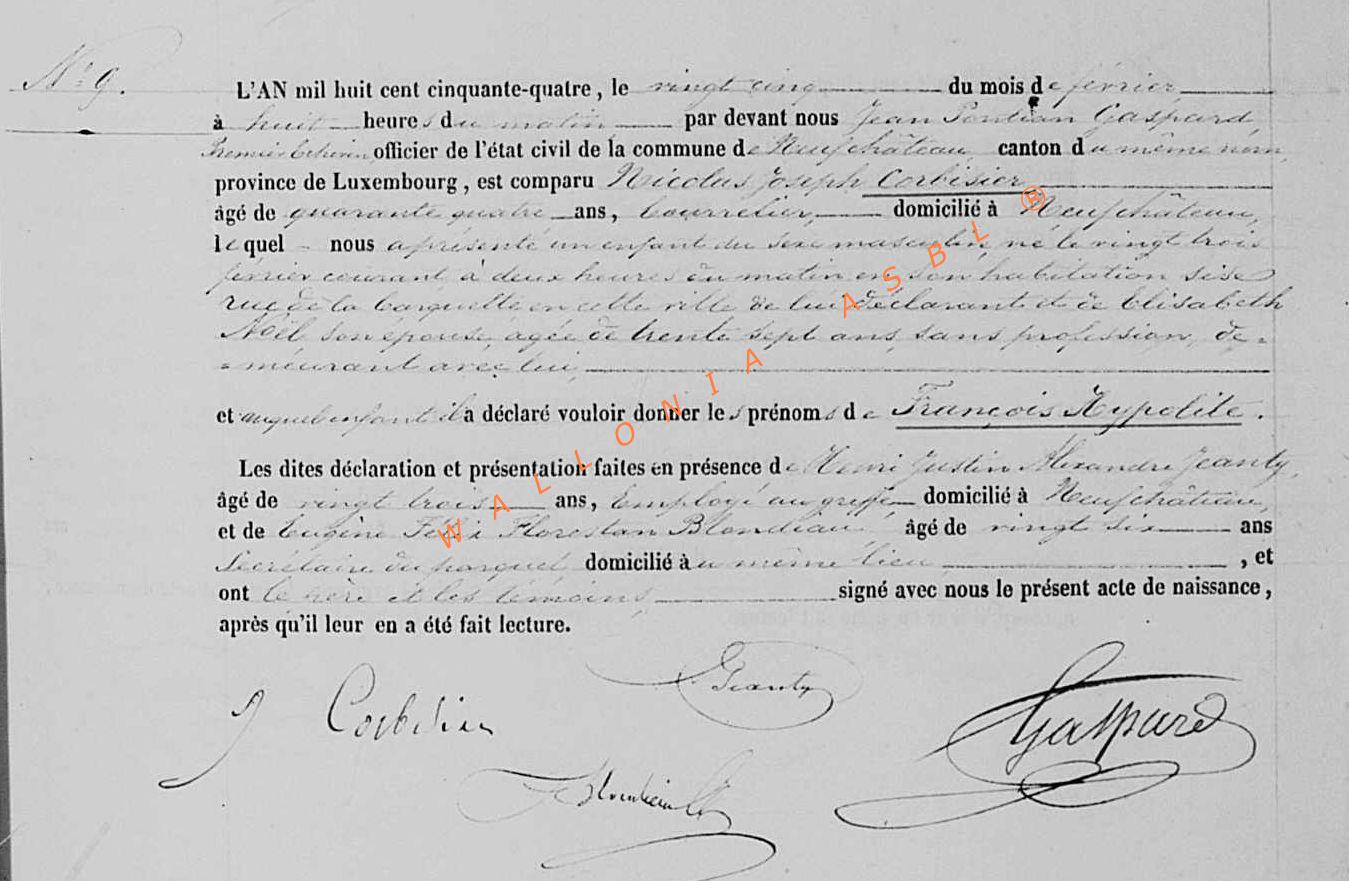 N° 9.
L'AN mil huit cent cinquante-quatre, le vingt cinq du mois de février
à huit heures du matin par devant nous Jean Pontian Gaspard,
Premier Echevin officier de l'état civil de la commune de Neufchâteau, canton du même nom,
province de Luxembourg, est comparu Nicolas Joseph Corbisier
âgé de quarante quatre ans, bourrelier, domicilié à Neufchâteau,
lequel nous a présenté un enfant du sexe masculin, né le vingt trois
février courant à deux heures du matin en son habitation sise
rue de la en cette ville de lui déclarant et de Elisabeth
Noël son épouse, agée de trente sept ans, sans profession, de-
-meurant avec lui,
et auquel enfant il a déclaré vouloir donner les prénoms de François Hypolite.
Les dites déclaration et présentation faites en présence de Henri Justin Alexandre Jeanty,
âgé de vingt trois ans, Employé au greffe domicilié à Neufchâteau,
et de Eugène Felix Florestan Blondiau, âgé de vingt six ans
Secrétaire du parquet domicilié au même lieu, et
ont le père et les témoins, signé avec nous le présent acte de naissance,
après qu'il leur en a été fait lecture.
Jeanty
Corbisier
Gaspard
WALLONIA ASBL ®